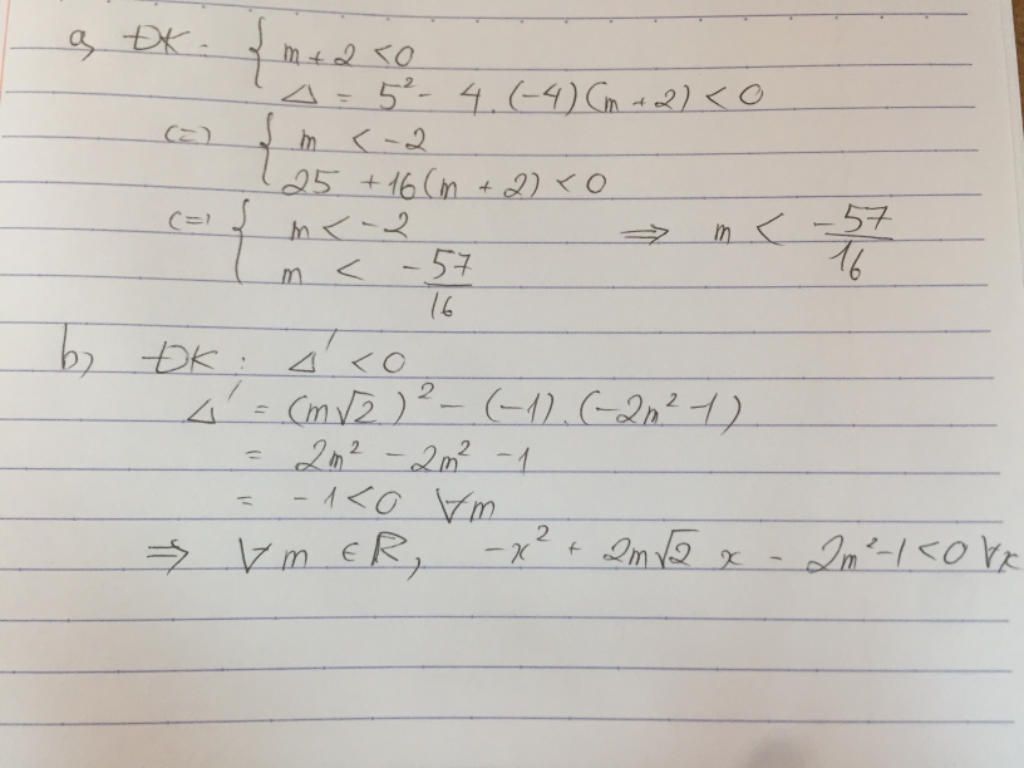 a, ĐK: { m + 2 < 0
Δ = 5² - 4.(-4)(m + 2) < 0
(=) { m < -2
25 + 16(m + 2) < 0
(=) { m < -2 ⇒ m < -57/16
m < -57/16
b, ĐK: Δ' < 0
Δ' = (m√2)² - (-1).(-2m² - 1)
= 2m² - 2m² - 1
= -1 < 0 ∀m
⇒ ∀m ∈ R, -x² + 2m√2 x - 2m² - 1 < 0 ∀x